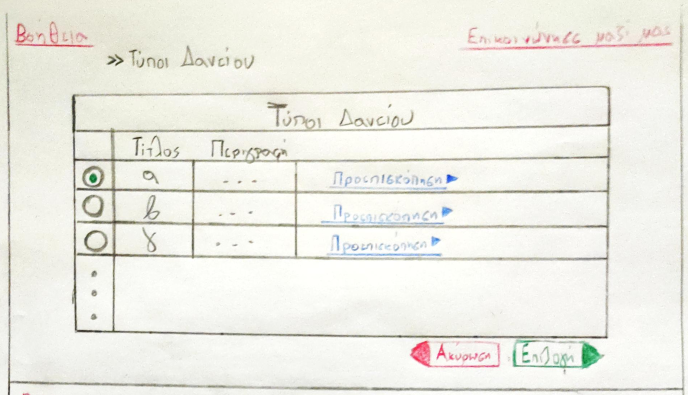 Βοήθεια Επικοινώνησε μαζί μας
>> Τύποι Δανείου
Τύποι Δανείου
Τίτλος Περιγραφή
α ... Προεπισκόπηση
β ... Προεπισκόπηση
γ ... Προεπισκόπηση
Ακύρωση Επιλογή